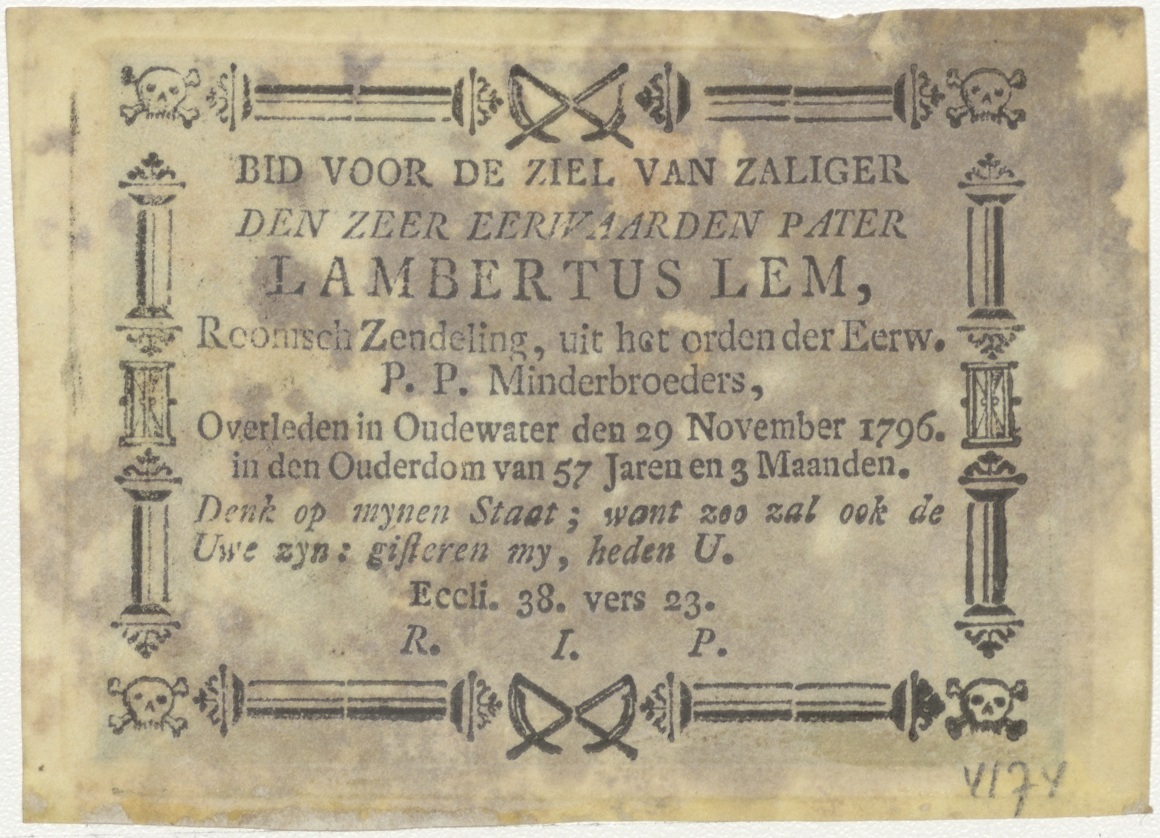 BID VOOR DE ZIEL VAN ZALIGER
DEN ZEER EERWAARDEN PATER
LAMBERTUS LEM,
Roomsch Zendeling, uit het orden der Eerw.
P. P. Minderbroeders,
Overleden in Oudewater den 29 November 1796.
in den Ouderdom van 57 Jaren en 3 Maanden.
Denk op mynen Staat; want zoo zal ook de
Uwe zyn: gisteren my, heden U.
Eccli. 38. vers 23.
R. I. P.